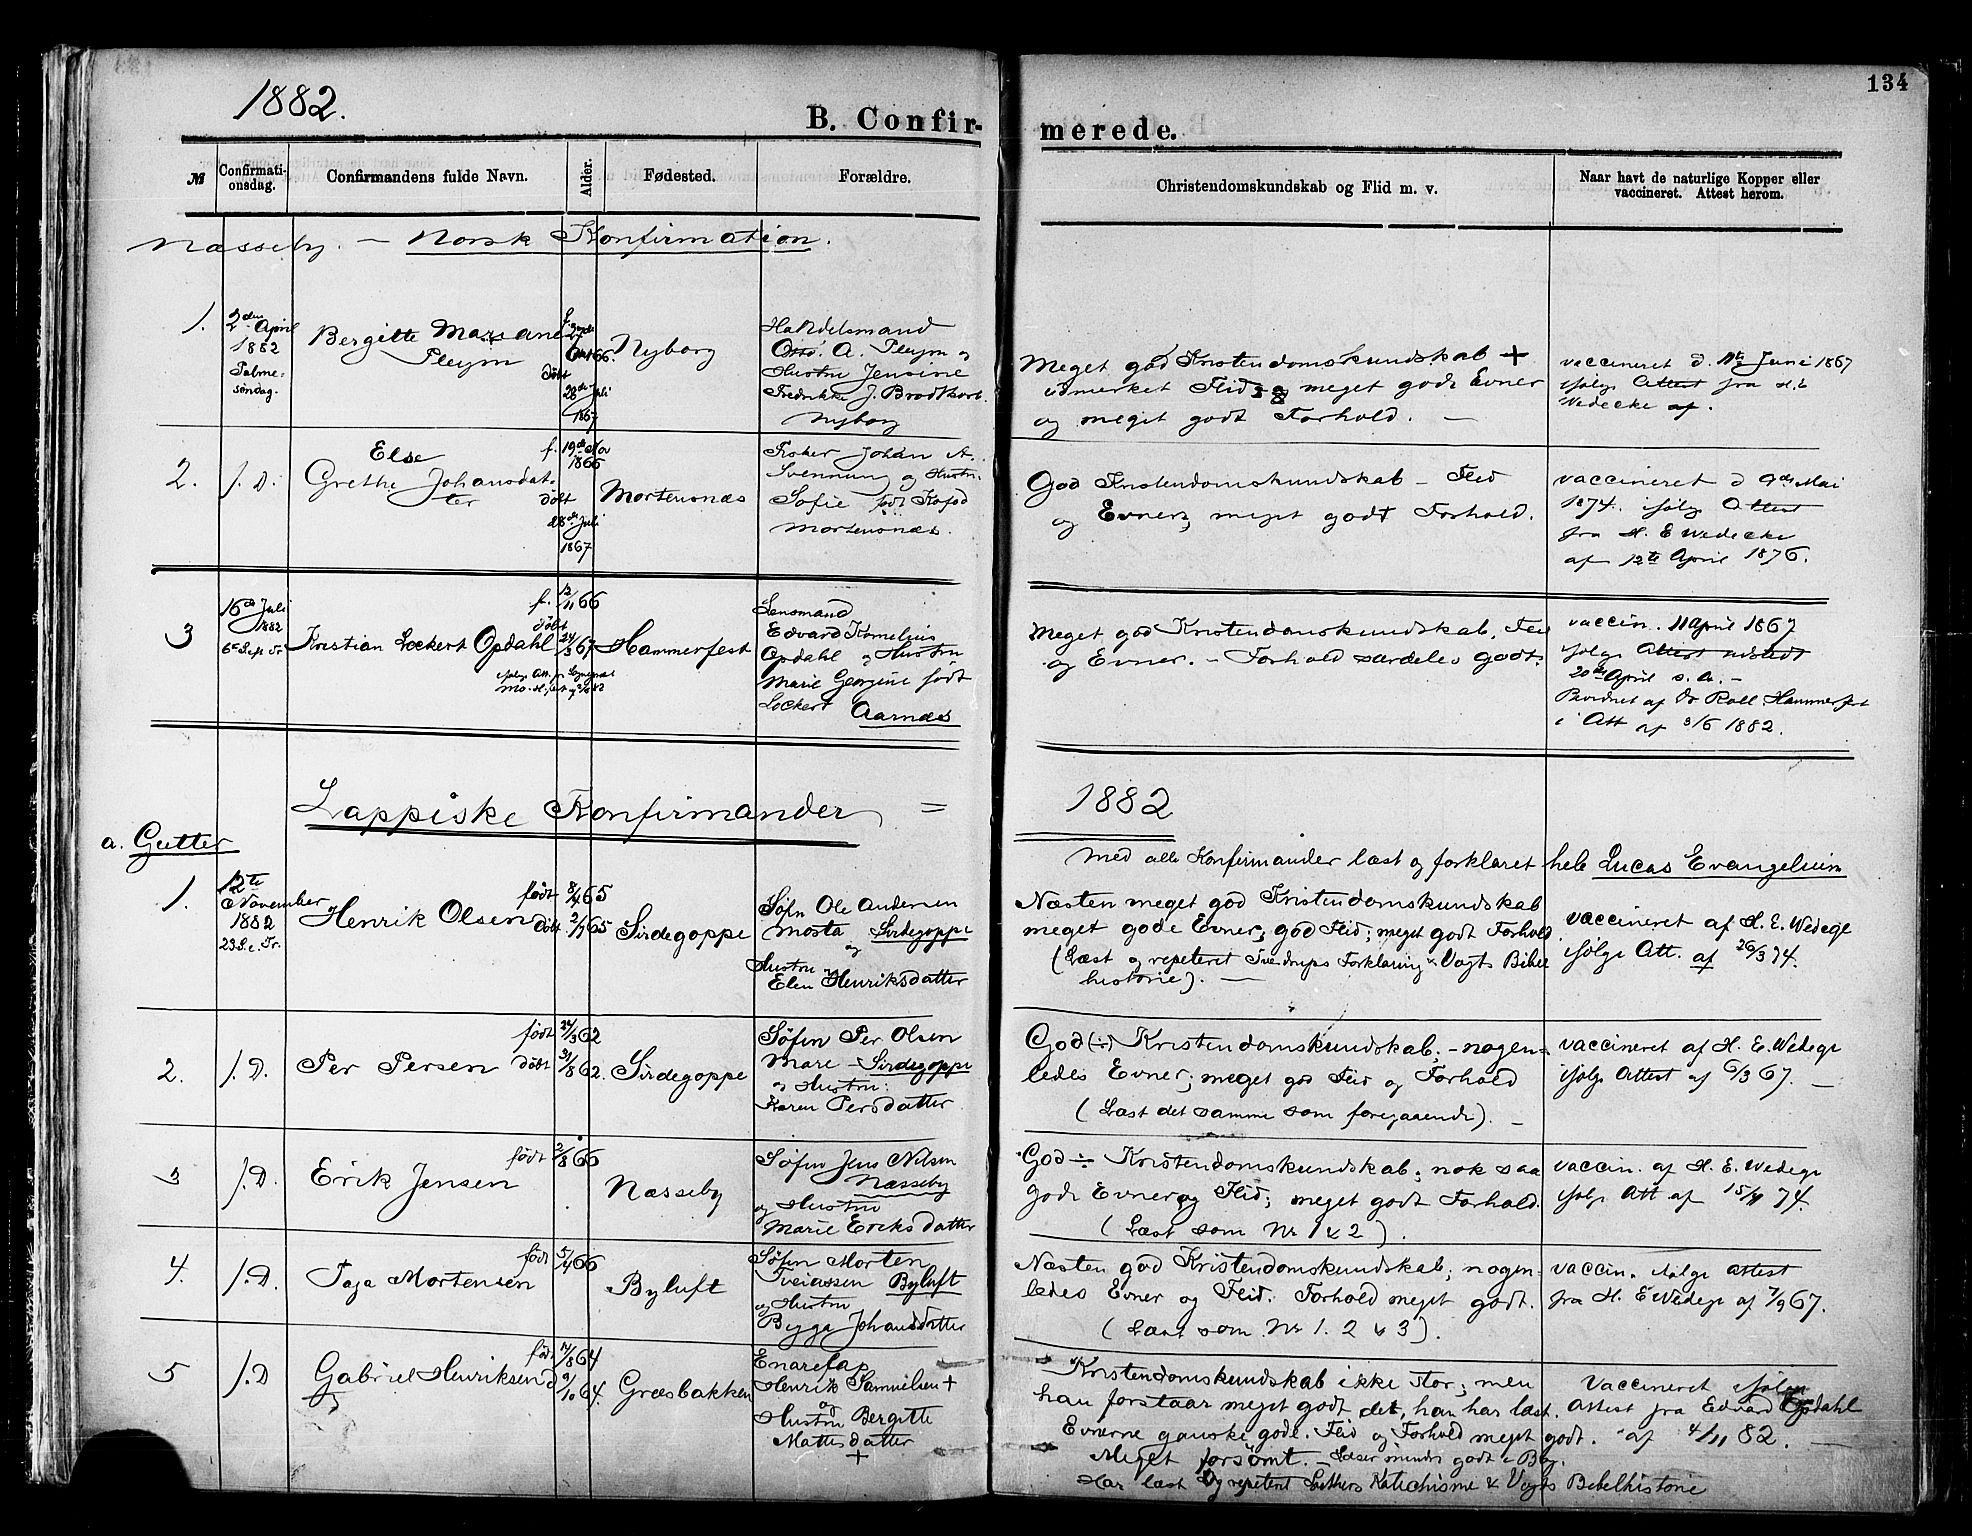 134
1882.
B. Confirmerede.
№
Confirmationsdag.
Confirmandens fulde Navn.
Alder.
Fødested.
Forældre.
Christendomskundskab og Flid m. v.
Naar havt de naturlige Kopper eller
vaccineret. Attest herom.
Næsseby. — Norsk Konfirmation.
1.
2den April
1882
Palme-
søndag.
Bergitte Mariane
Pleym
døbt
28de Juli
1867
Nyborg
Handelsmand
Otto A. Pleym og
Hustru Jensine
Fredrikke J. Brodtkorb.
Nyborg
Meget god Kristendomskundskab +
udmerket Flid og meget gode Evner
og meget godt Forhold. —
vaccineret d. 11te Juni 1867
ifølge Attest fra H. E
Wedecke af.
2.
s. D.
Else
Grethe Johansdat-
ter
f. 19de Nov
1866
døbt
28de Juli
1867
Mortensnæs
Fisker Johan A.
Svenning og Hustru
Sofie født Kofod
Mortensnæs.
God Kristendomskundskab — Flid
og Evner, meget godt Forhold.
vaccineret d 9de Mai
1874. ifølge Attest
fra H. E Wedecke
af 12te April 1876.
3
16de Juli
1882
6te S. e. Tr.
Kristian Lockert Opdahl
f. 12/11 66
døbt
24/3 67
Hammerfest
Lensmand
Edvard Kornelius
Opdahl og Hustru
Marie Georgine født
Lockert Aarnæs
Meget god Kristendomskundskab, Flid
og Evner. — Forhold særdeles godt.
vaccin. 11 April 1867
ifølge Attest udstedt
20de April s. a. —
Bevidnet af Dr Roll Hammerfest
i Att af 3/6 1882.
Lappiske Konfirmander =
1882
a. Gutter
Med alle Konfirmander læst og forklaret hele Lucas Evangelium
1.
12te
November
1882
23 S. e. Tr.
Henrik Olsen
født 8/4 65
døbt 2/7 65
Sirdegoppe
Søfin Ole Andersen
Mosta Sirdegoppe
og
Hustru
Elen Henriksdatter
Næsten meget god Kristendomskundskab
meget gode Evner; god Flid; meget godt Forhold.
(Læst og repeteret Sverdrups Forklaring & Vogts Bibel
historie). —
vaccineret af H. E. Wedege
ifølge Att. af 26/3 74.
2.
s. D.
Per Persen
født 24/3 62
døbt 31/8 62.
Sirdegoppe
Søfin Per Olsen
Mare – Sirdegoppe
og Hustru:
Karen Persdatter
God (÷) Kristendomskundskab; – nogen-
ledes Evner; meget god Flid og Forhold
(Læst det samme som foregaaende). —
vaccineret af H. E. Wedege
ifølge Attest af 6/3 67. —
3
s. D.
Erik Jensen
født 2/8 66
Næsseby
Søfin Jens Nilsen
Næsseby
og Hustru
Marie Eriksdatter
God ÷ Kristendomskundskab; nok saa
gode Evner og Flid; meget godt Forhold.
(Læst som Nr 1 & 2).
vaccin. af H. E. Wedege
ifølge Att af 15/4 74.
4.
s. D.
Paja Mortensen
født 5/4 66
Byluft
Søfin Morten
Byluft
og Hustru
Bigga Johansdatter
Næsten god Kristendomskundskab; nogen-
ledes Evner og Flid. Forhold meget godt.
(Læst som Nr 1. 2 & 3).
vaccin. ifølge Attest
fra H. E Wedege af 7/9 67.
5
s. D
Gabriel Henriksen
født 14/8 64
d 9/10 64.
Græsbakken
Enarefap
Henrik Samuelsen +
og
Hustru Bergitte
Mattisdatter
+
Kristendomskundskab ikke stor; men
han forstaar meget godt det, han har læst.
Evnerne ganske gode. Flid og Forhold meget godt.
Meget forsømt. — Læser mindre godt i Bog.
Har læst og repeteret Luthers Katechisme & Vogts Bibelhistorie
Vaccineret ifølge
Attest fra Edvard Opdahl
af 4/11 82. —